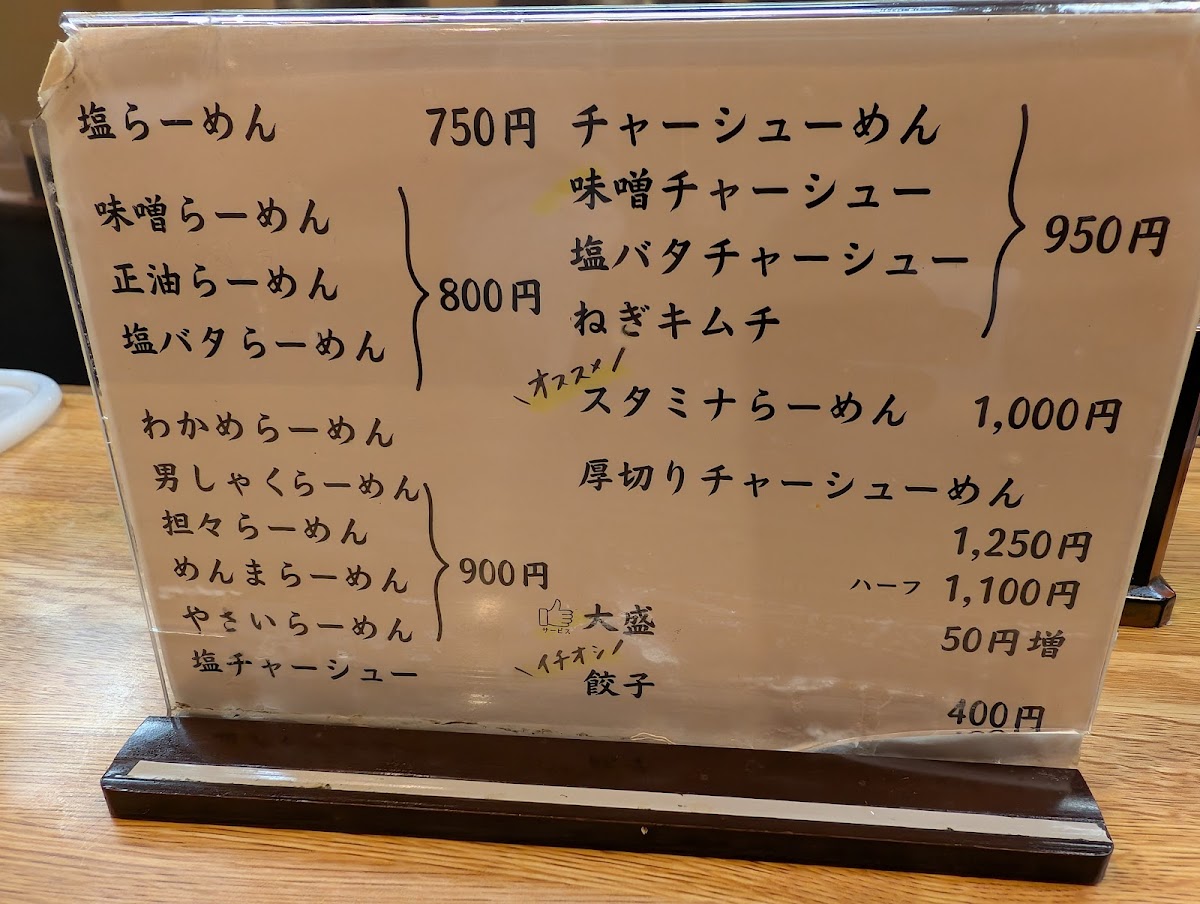 塩らーめん 750円
味噌らーめん
正油らーめん
塩バタらーめん
800円
わかめらーめん
男しゃくらーめん
担々らーめん
めんまらーめん
やさいらーめん
塩チャーシュー
900円
チャーシューめん
味噌チャーシュー
塩バタチャーシュー
ねぎキムチ
950円
オススメ!
スタミナらーめん 1,000円
厚切りチャーシューめん
1,250円
ハーフ 1,100円
サービス
大盛 50円増
イチオシ!
餃子 400円